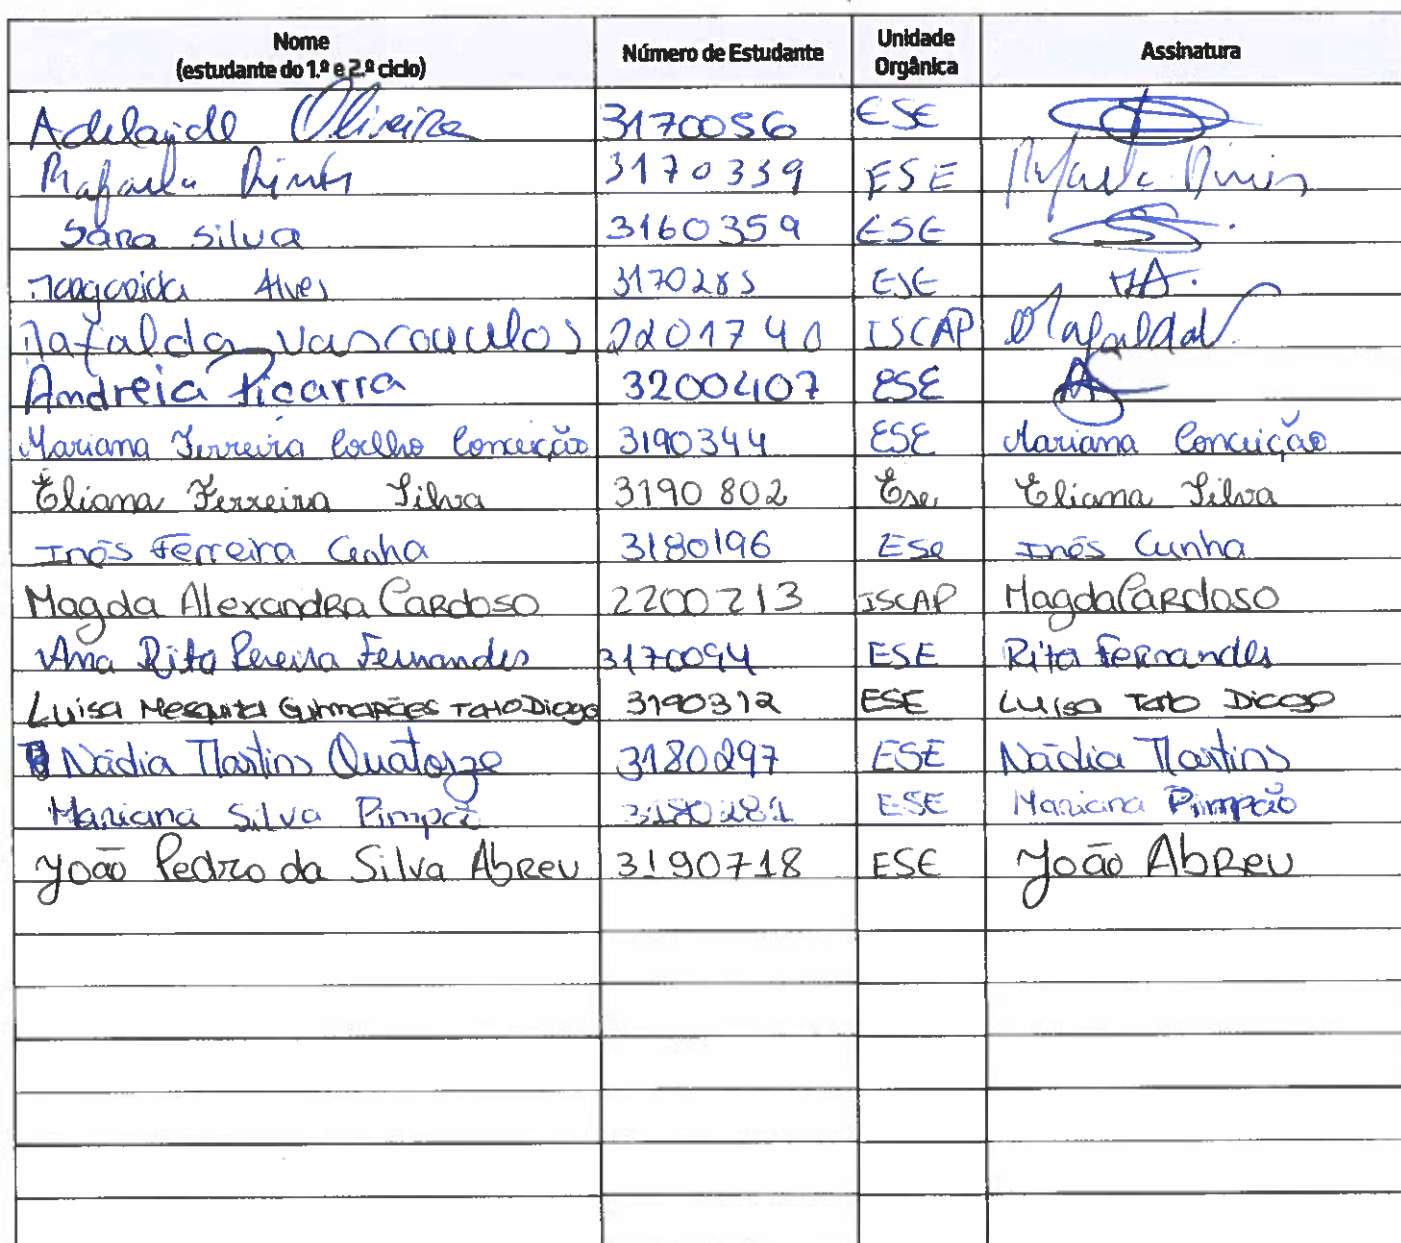 Nome (estudante do 1.º e 2.º ciclo) Número de Estudante Unidade Orgânica Assinatura
Adelaide Oliveira 3170056 ESE
Rafaela Dinis 3170339 ESE Rafaela Dinis
Sara Silva 3160359 ESE
Margarida Alves 3170285 ESE MA.
Mafalda Vasconcelos 2201740 ISCAP Mafalda
Andreia Piçarra 3200407 ESE
Mariana Ferreira Coelho Conceição 3190344 ESE Mariana Conceição
Eliana Ferreira Silva 3190802 Ese Eliana Silva
Inês Ferreira Cunha 3180196 ESe Inês Cunha
Magda Alexandra Cardoso 2200213 ISCAP Magda Cardoso
Ana Rita Pereira Fernandes 3170094 ESE Rita Fernandes
Luisa Mesquita Guimarães Tato Diogo 3190312 ESE Luisa Tato Diogo
Nádia Martins Quatorze 3180297 ESE Nádia Martins
Mariana Silva Pimpão 3180281 ESE Mariana Pimpão
João Pedro da Silva Abreu 3190718 ESE João Abreu